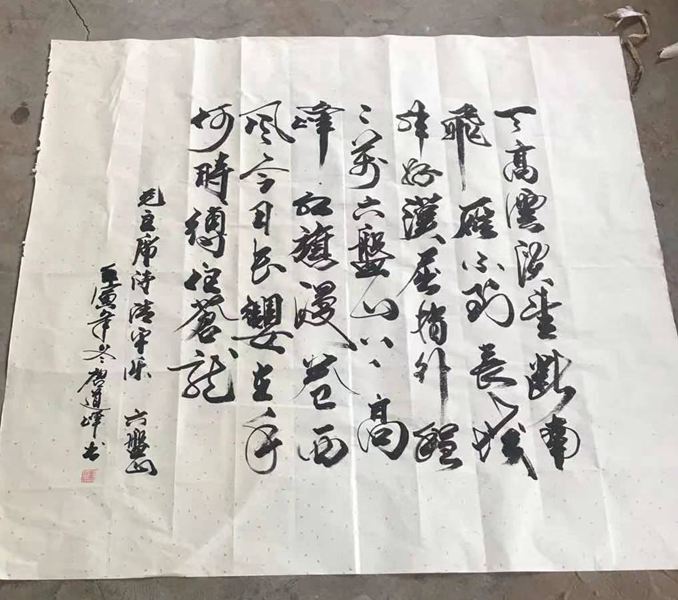 天高雲淡望断南
飛雁不到長城
非好漢屈指行程
二萬六盤山上高
峰紅旗漫卷西
風今日長纓在手
何時縛住蒼龍
毛主席詩清平樂 六盤山
壬寅年冬唐道峰书